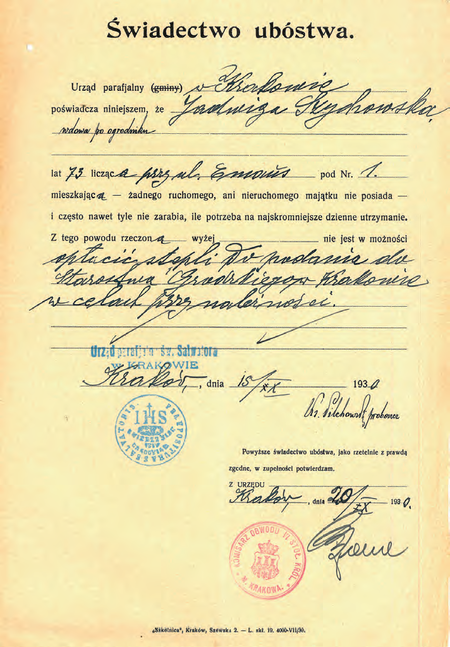 Świadectwo ubóstwa.
Urząd parafjalny (gminy) w Krakowie
poświadcza niniejszem, że Jadwiga Szychowska,
wdowa po ogrodniku
lat 73 licząca przy ul. Emaus pod Nr. 1.
mieszkająca — żadnego ruchomego, ani nieruchomego majątku nie posiada —
i często nawet tyle nie zarabia, ile potrzeba na najskromniejsze dzienne utrzymanie.
Z tego powodu rzeczona wyżej nie jest w możności
opłacić stępli do podania do
Starostwa Grodzkiego w Krakowie
w celach przynależności.
Urząd parafjalny św. Salwatora
W KRAKOWIE
Kraków, dnia 15/XX 1930
IHS
Ks. proboszcz
Powyższe świadectwo ubóstwa, jako rzetelnie z prawdą
zgodne, w zupełności potwierdzam.
Z URZĘDU
Kraków, dnia 20/XX 1930.
KOMISARZ OBWODU VI STOŁ. KRÓL.
M. KRAKOWA
„Szkolnica", Kraków, Szewska 2. — L. skł. 19. 4000-VII/30.